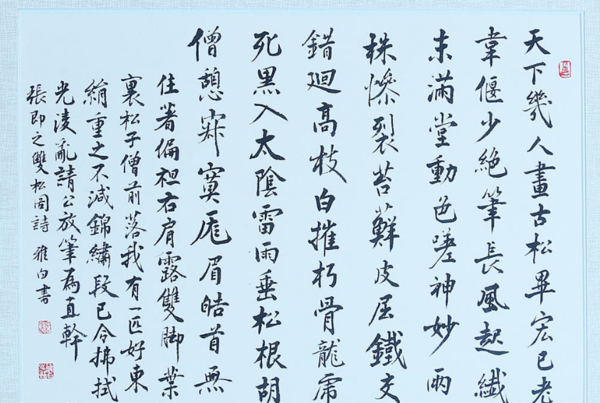 天下幾人畫古松畢宏已老
韋偃少絕筆長風起纖
末滿堂動色嗟神妙兩
株慘裂苔蘚皮屈鐵交
錯迴高枝白摧朽骨龍虎
死黑入太陰雷雨垂松根胡
僧憩寂寞厖眉皓首無
住著偏袒右肩露雙脚葉
裏松子僧前落我有一匹好東
絹重之不減錦繡段已令拂拭
光淩亂請公放筆為直幹
張即之雙松图詩 雅白書